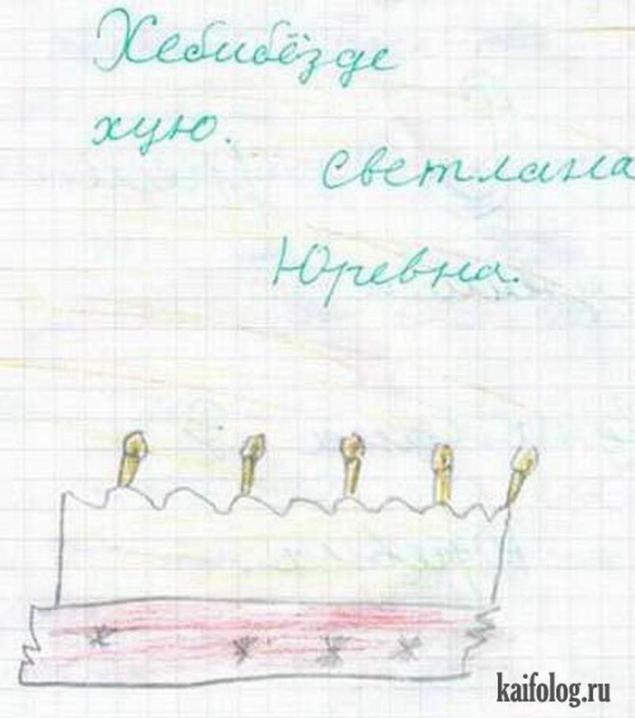 Хебибёзде
хую.
светлана
Юревна.
kaifolog.ru